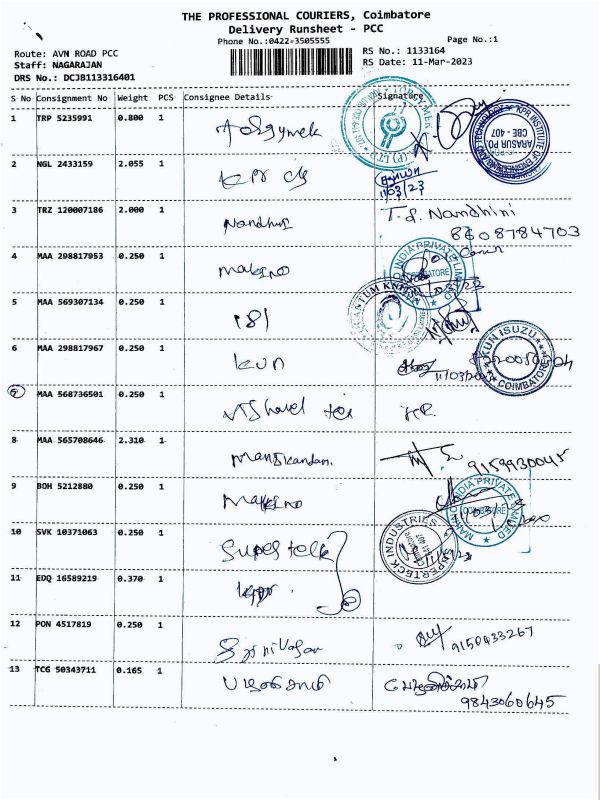 THE PROFESSIONAL COURIERS, Coimbatore
Delivery Runsheet - PCC
Phone No.:0422-3505555
Page No.:1
Route: AVN ROAD PCC
Staff: NAGARAJAN
DRS No.: DCJB113316401
RS No.: 1133164
RS Date: 11-Mar-2023
S No Consignment No Weight PCS Consignee Details Signature
1 TRP 5235991 0.800 1
KPR INSTITUTE OF ENGINEERING AND TECHNOLOGY
ARASUR PO
CBE - 407
2 NGL 2433159 2.055 1 KPR
11/03/23
3 TRZ 120007186 2.000 1 Nandhini T.S. Nandhini
8608784703
4 MAA 298817953 0.250 1 Makino
INDIA PRIVATE LIMITED
COIMBATORE
5 MAA 569307134 0.250 1 181
6 MAA 298817967 0.250 1 Kun
KUN ISUZU
COIMBATORE
7 MAA 568736501 0.250 1 Vishard tex
8 MAA 565708646 2.310 1 Manikandan
9159930045
9 BOH 5212880 0.250 1 Makino
MAKINO INDIA PRIVATE LIMITED
COIMBATORE
10 SVK 10371063 0.250 1 Supertech
SUPERTECK INDUSTRIES
11 EDQ 16589219 0.370 1
12 PON 4517819 0.250 1 Srinivasan
9150433267
13 TCG 50343711 0.165 1
9843060645